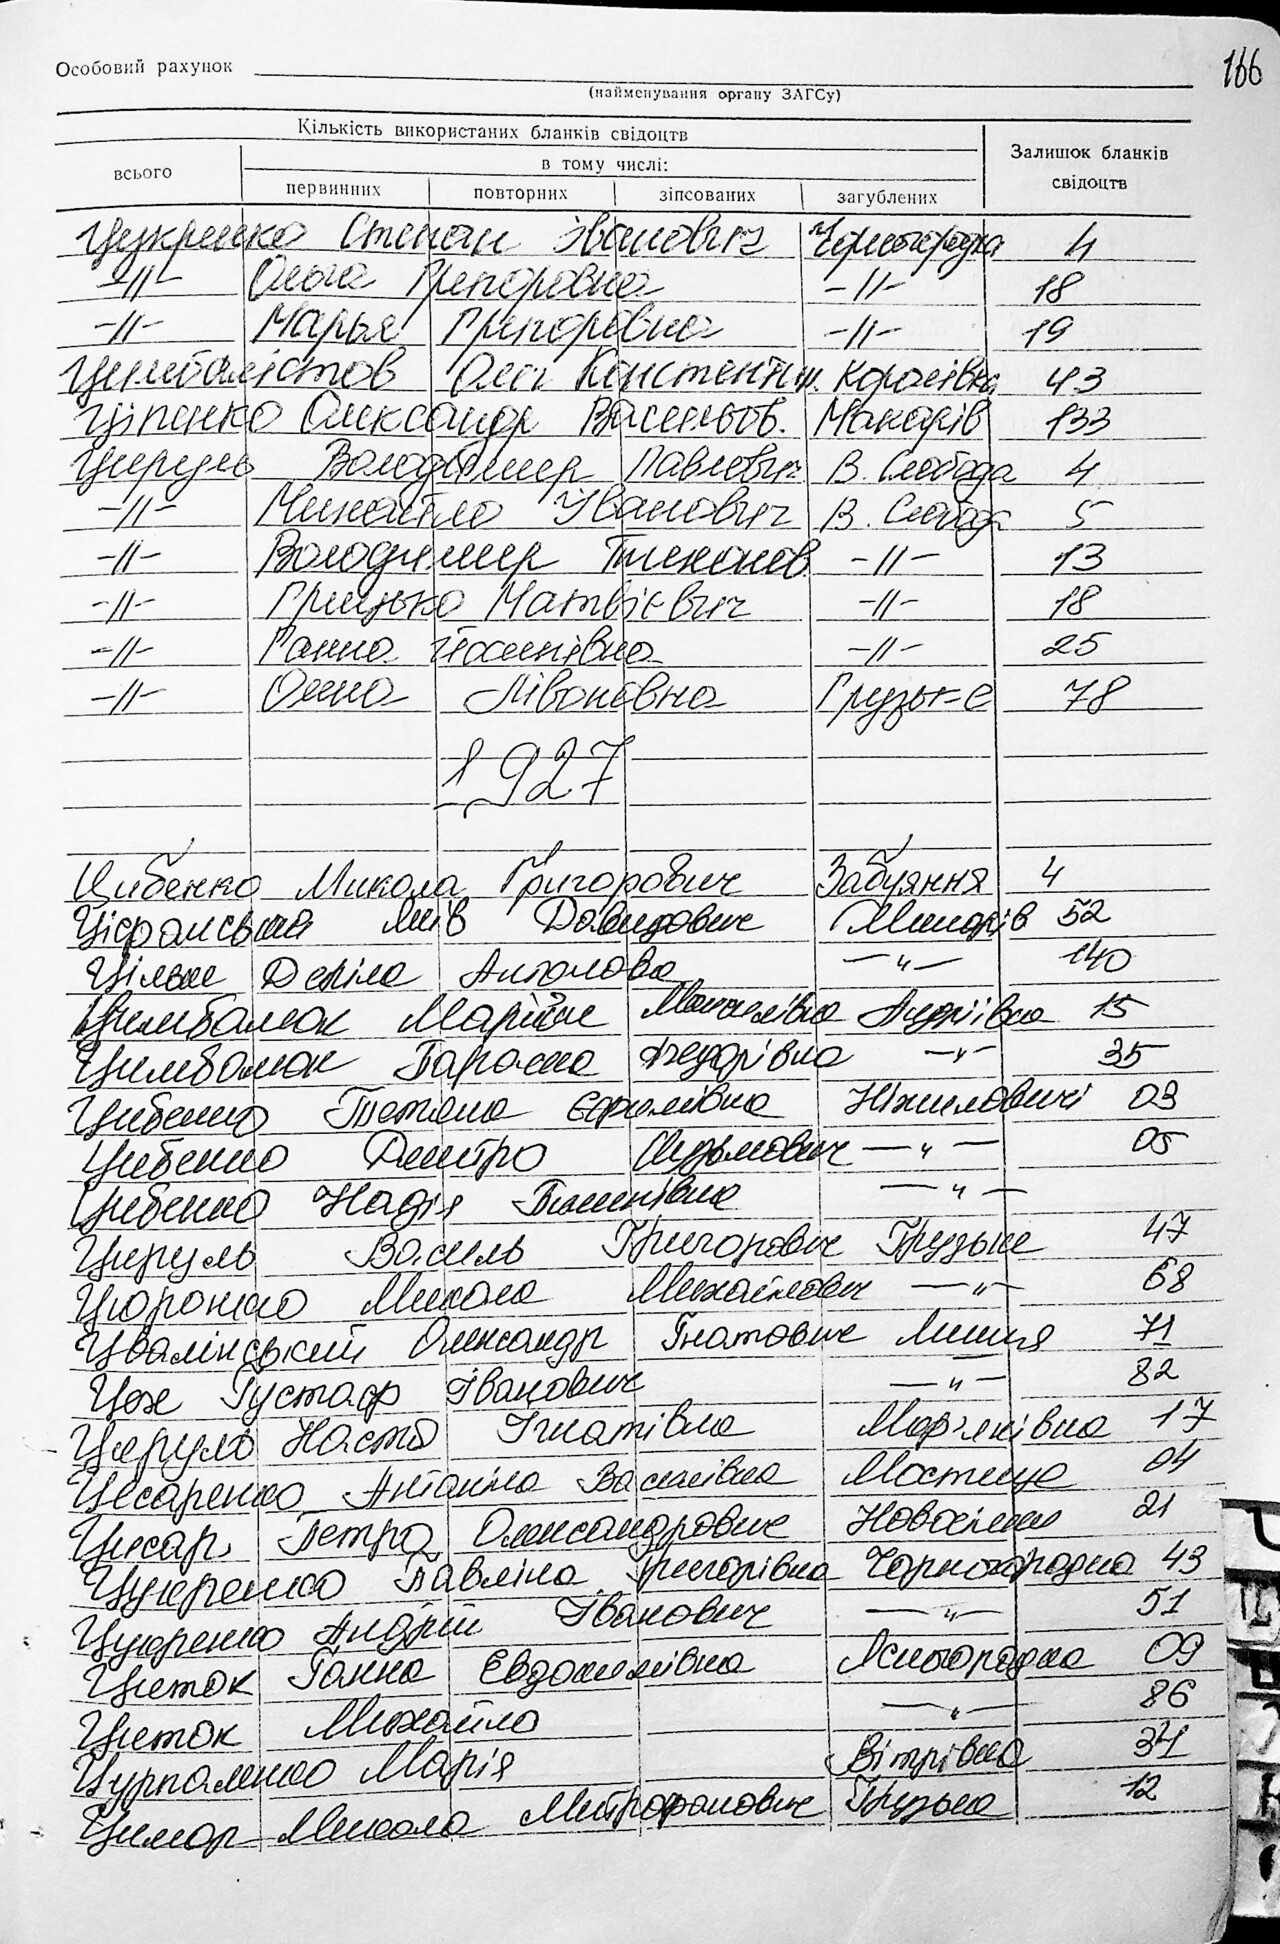 166
Особовий рахунок
(найменування органу ЗАГСу)
Кількість використаних бланків свідоцтв
Залишок бланків свідоцтв
всього
в тому числі:
первинних повторних зіпсованих загублених
Цукренко Степан Іванович Чорногородка 4
-//- Ольга Григоровна -//- 18
-//- Марья Григоровна -//- 19
Цимбалістов Олег Королівка 43
Ціпенко Олександр Васильов. Макарів 133
Цируль Володимир Павлович В. Слобода 4
-//- Михайло Іванович В. Слобода 5
-//- Володимир Тихонов. -//- 13
-//- Грицько Матвієвич -//- 18
-//- Ганна -//- 25
-//- Олена Грузьке 78
1927
Цибенко Микола Григорович Забуяння 4
Давидович Макарів 52
-"- 140
Цимбалюк Андріївка 15
Цимбалюк Параска Федорівна -"- 35
Цибенко Тетяна Єфремівна Ніжиловичі 03
Цибенко Дмитро Кузьмович -"- 05
Цибенко Надія Пилипівна -"-
Цируль Василь Григорович Грузьке 47
Микола Михайлович -"- 68
Цвалінський Олександр Гнатович 71
Цех Густаф Іванович -"- 82
Цируль Настя Ігнатівна Мар'янівка 17
Цесаренко Антоніна Василівна Мостище 04
Цисар Петро Олександрович Новосілки 21
Цукренко Павліна Григорівна Чорногородка 43
Цукренко Андрій Іванович -"- 51
Циток Ганна Євдокимівна Ясногородка 09
Циток Михайло -"- 86
Цурпаленко Марія Вітрівка 34
Цимор Микола Митрофанович Грузьке 12